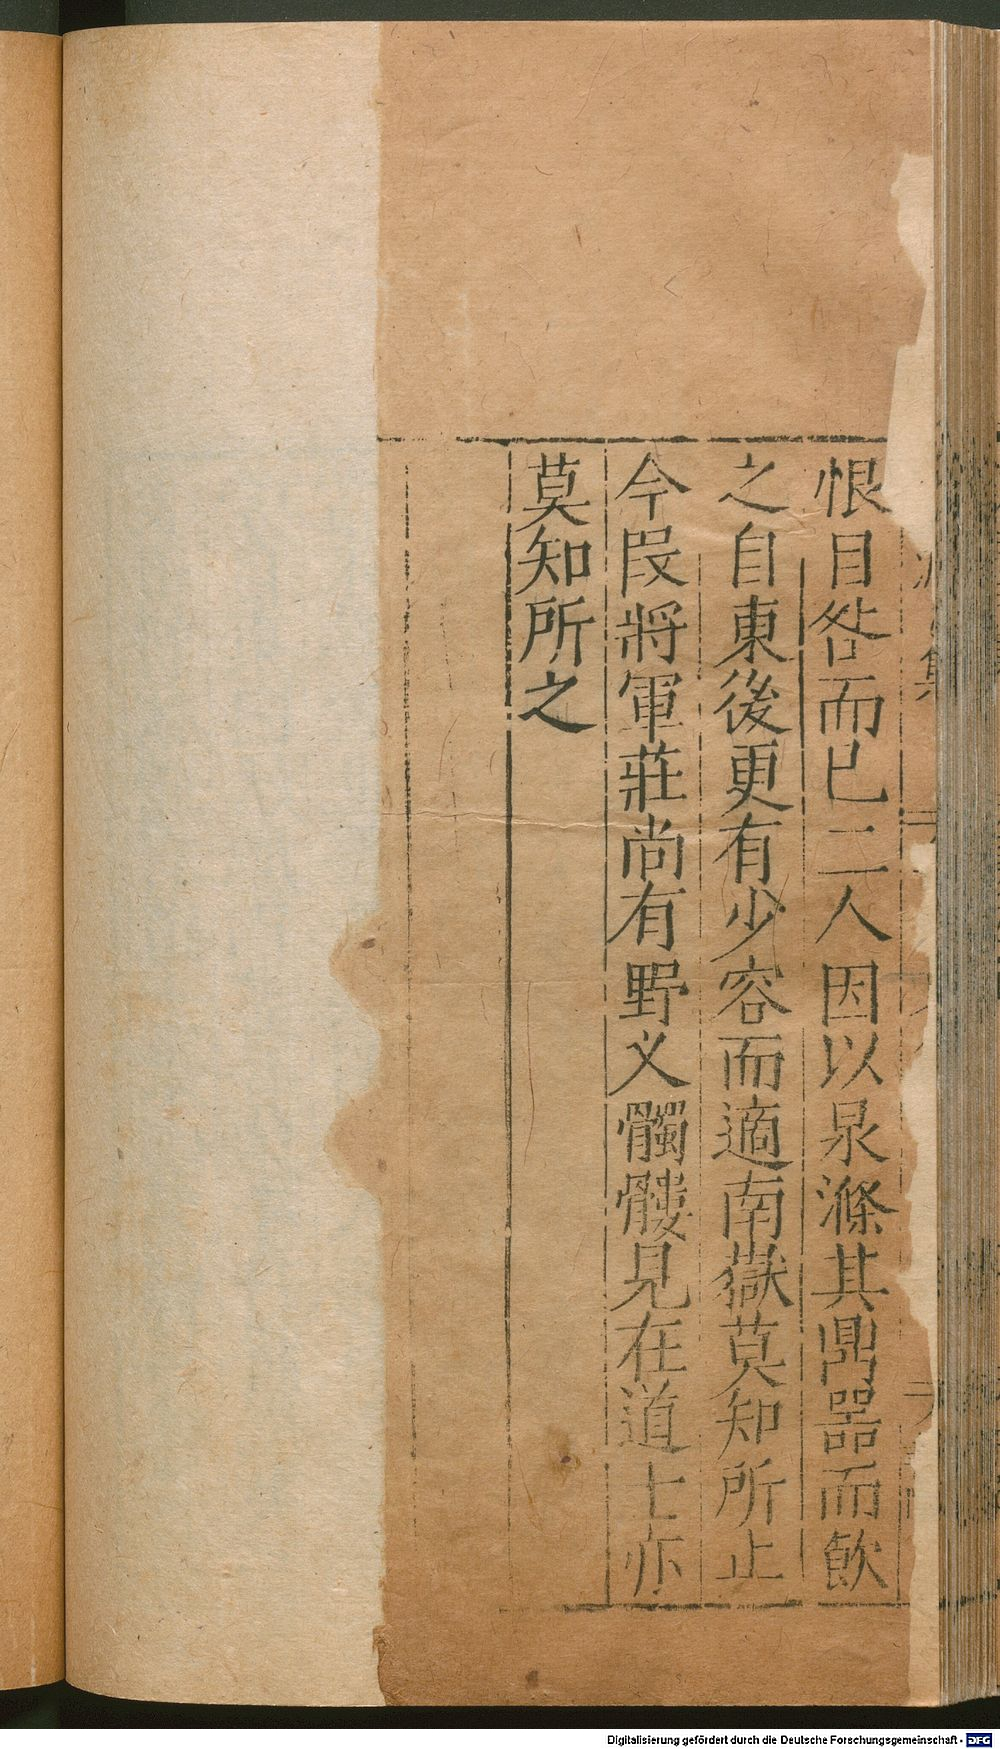 恨目咎而已二人因以泉滌其鼎器而飲
之自東後更有少容而適南嶽莫知所止
今叚將軍莊尚有野义髑髏見在道士亦
莫知所之
Digitalisierung gefördert durch die Deutsche Forschungsgemeinschaft - DFG